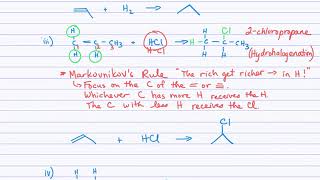 + H2 →
H Cl
iii) C = C - CH3 + HCl → H - C - C - CH3 2-chloropropane
H H H H (Hydrohalogenation)
* Markovnikov's Rule "The rich get richer → in H!"
↳ Focus on the C of the = or ≡.
Whichever C has more H receives the H.
The C with less H receives the Cl.
Cl
+ HCl →
iv) H H